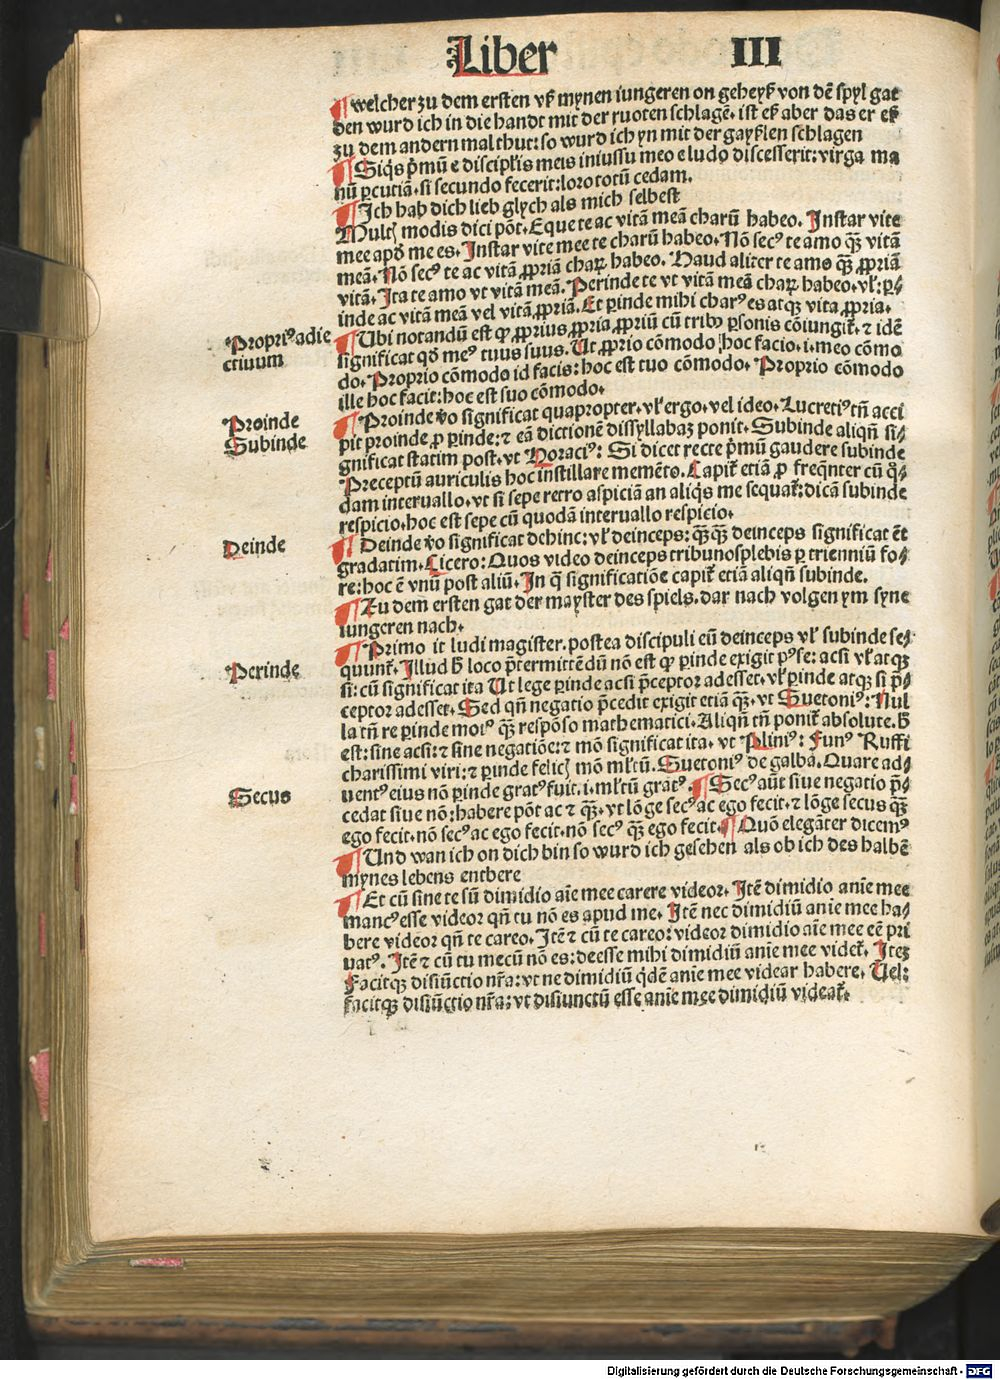 Liber III
¶ welcher zu dem ersten vß mynen iungeren on geheyß von dē spyl gat
den wurd ich in die handt mit der ruoten schlagē. ist eß aber das er eß
zu dem andern mal thut: so wurd ich yn mit der gayßlen schlagen
¶ Siq̇s p̄mū e discipl̄is meis iniussu meo e ludo discesserit: virga ma
nū ꝑcutiā. si secundo fecerit: loro totū cedam.
¶ Ich hab dich lieb glych als mich selbest
Multꝭ modis dici pōt. Eque te ac vitā meā charū habeo. Instar vite
mee apd̄ me es. Instar vite mee te charū habeo. Nō secꝰ te amo qꝫ̄ vitā
meā. Nō secꝰ te ac vitā ꝓpriā charꝝ habeo. Haud aliter te amo qꝫ̄ ꝓpriā
vitā. Ita te amo vt vitā meā. Perinde te vt vitā meā charꝝ habeo. vl̕: ꝑ⸗
inde ac vitā meā vel vitā ꝓpriā. Et ꝑinde mihi charꝰ es atqꝫ vita ꝓpria.
Propriꝰ adie
ctiuum
¶ Ubi notandū est ꝙ ꝓprius ꝓpria ꝓpriū cū tribꝰ ꝑsonis cōiungit̄. ⁊ idē
significat qd̄ meꝰ tuus suus. Ut ꝓprio cōmodo hoc facio. i. meo cōmo
do. Proprio cōmodo id facis: hoc est tuo cōmodo. Proprio cōmodo
ille hoc facit: hoc est suo cōmodo.
Proinde
Subinde
¶ Proinde v̄o significat quapropter. vl̕ ergo. vel ideo. Lucretiꝰ tn̄ acci
pit proinde ꝓ ꝑinde: ⁊ eā dictionē dissyllabaꝫ ponit. Subinde aliqn̄ si⸗
gnificat statim post. vt Horaciꝰ: Si dicet recte p̄mū gaudere subinde
Preceptū auriculis hoc instillare memēto. Capit̄ etiā ꝓ freqn̄ter cū q̇⸗
dam interuallo. vt si sepe retro aspiciā an aliq̇s me sequat̄: dicā subinde
respicio. hoc est sepe cū quodā interuallo respicio.
Deinde
¶ Deinde v̄o significat dehinc: vl̕ deinceps: qꝫ̄qꝫ̄ deinceps significat ēt
gradatim. Cicero: Quos video deinceps tribunos plebis ꝑ trienniū fo⸗
re: hoc ē vnū post aliū. In q̄ significatiōe capit̄ etiā aliqn̄ subinde.
¶ Zu dem ersten gat der mayster des spiels. dar nach volgen ym syne
iungeren nach.
¶ Primo it ludi magister. postea discipuli eū deinceps vl̕ subinde se⸗
quunt̄.
Perinde
Illud h̄ loco p̄termittēdū nō est ꝙ ꝑinde exigit pꝰ se: acsi vl̕ atqꝫ
si: cū significat ita Ut lege ꝑinde acsi p̄ceptor adesset. vl̕ ꝑinde atqꝫ si p̄⸗
ceptor adesset. Sed qn̄ negatio p̄cedit exigit etiā qꝫ̄. vt Suetoniꝰ: Nul
la tn̄ re ꝑinde motꝰ qꝫ̄ respōso mathematici. Aliqn̄ tn̄ ponit̄ absolute. h̄
est: sine acsi: ⁊ sine negatiōe: ⁊ mō significat ita. vt Pliniꝰ: Funꝰ Ruffi
charissimi viri: ⁊ ꝑinde felicꝭ mō ml̕tū. Suetoniꝰ de galba. Quare ad⸗
uentꝰ eius nō ꝑinde gratꝰ fuit. i. ml̕tū gratꝰ.
Secus
¶ Secꝰ aūt siue negatio p̄⸗
cedat siue nō: habere pōt ac ⁊ qꝫ̄. vt lōge secꝰ ac ego fecit. ⁊ lōge secus qꝫ̄
ego fecit. nō secꝰ ac ego fecit. nō secꝰ qꝫ̄ ego fecit. ¶ Quō elegāter dicemꝰ
¶ Und wan ich on dich bin so wurd ich gesehen als ob ich des halbē
mynes lebens entbere
¶ Et cū sine te sū dimidio aīe mee carere videor. Itē dimidio anīe mee
mancꝰ esse videor qn̄ tu nō es apud me. Itē nec dimidiū anīe mee ha⸗
bere videor qn̄ te careo. Itē ⁊ cū te careo: videor dimidio aīe mee eē pri
uatꝰ. Itē ⁊ cū tu mecū nō es: deesse mihi dimidiū anīe mee videt̄. Iteꝫ
Facitqꝫ disiūctio nr̄a: vt ne dimidiū q̇dē anīe mee videar habere. Uel:
facitqꝫ disiūctio nr̄a: vt disiunctū esse anīe mee dimidiū videat̄.
Digitalisierung gefördert durch die Deutsche Forschungsgemeinschaft - DFG